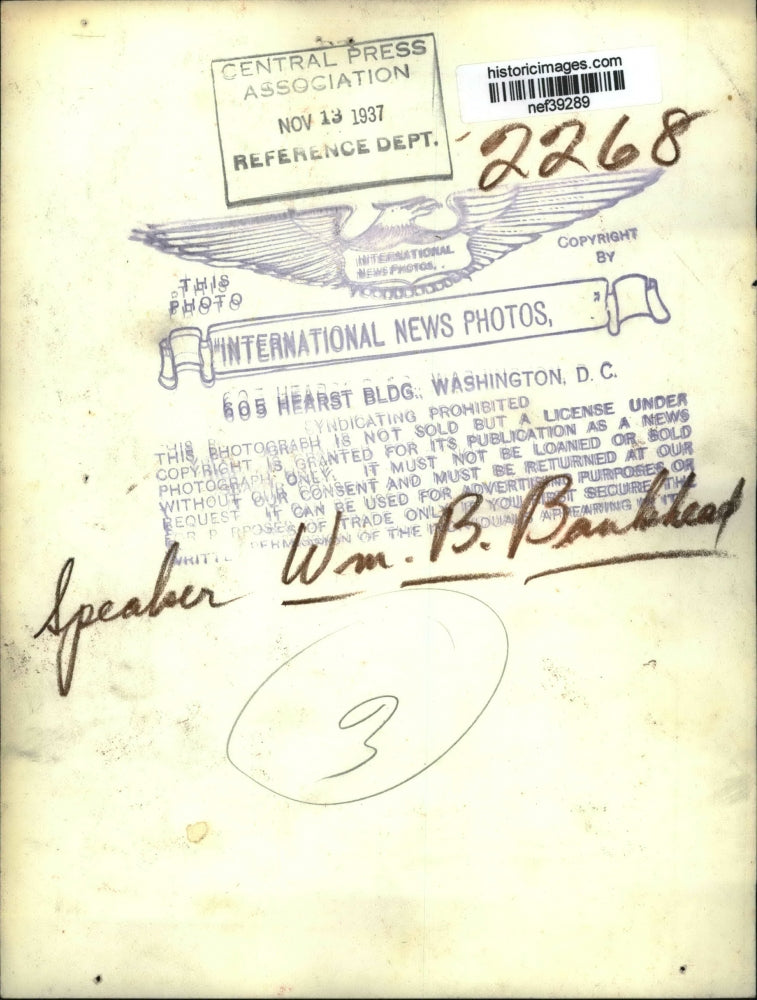 CENTRAL PRESS
ASSOCIATION
NOV 13 1937
REFERENCE DEPT.
historicimages.com
nef39289
2268
INTERNATIONAL
NEWS PHOTOS,
COPYRIGHT
BY
THIS
PHOTO
"INTERNATIONAL NEWS PHOTOS,"
605 HEARST BLDG., WASHINGTON, D. C.
SYNDICATING PROHIBITED
THIS PHOTOGRAPH IS NOT SOLD BUT A LICENSE UNDER
COPYRIGHT IS GRANTED FOR ITS PUBLICATION AS A NEWS
PHOTOGRAPH ONLY. IT MUST NOT BE LOANED OR SOLD
WITHOUT OUR CONSENT AND MUST BE RETURNED AT OUR
REQUEST IT CAN BE USED FOR ADVERTISING PURPOSES OR
PURPOSES OF TRADE ONLY IF YOU FIRST SECURE THE
PERMISSION OF THE APPEARING IN IT
Speaker Wm. B. Bankhead
3